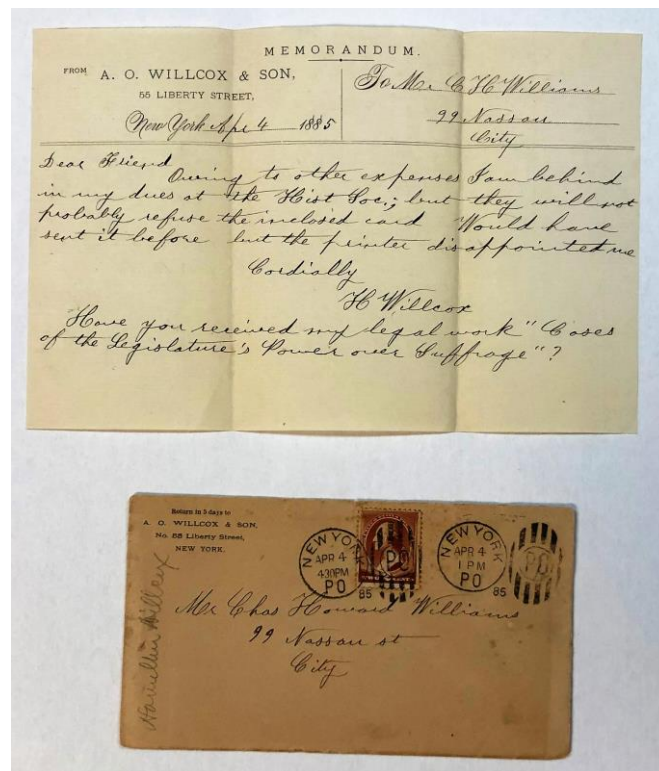 MEMORANDUM.
FROM A. O. WILLCOX & SON,
55 LIBERTY STREET,
New York Apr 4 1885
To Mr C H Williams
99 Nassau
City
Dear Friend
Owing to other expenses I am behind
in my dues at the Hist Soc.; but they will not
probably refuse the inclosed card Would have
sent it before but the printer disappointed me
Cordially
H Willcox
Have you received my legal work "Cases
of the Legislature's Power over Suffrage"?
Return in 5 days to
A. O. WILLCOX & SON,
No. 55 Liberty Street,
NEW YORK.
NEW YORK
APR 4
430PM
PO
85
PO
NEW YORK
APR 4
1 PM
PO
85
PO
Mr Chas Howard Williams
99 Nassau st
City
Willcox